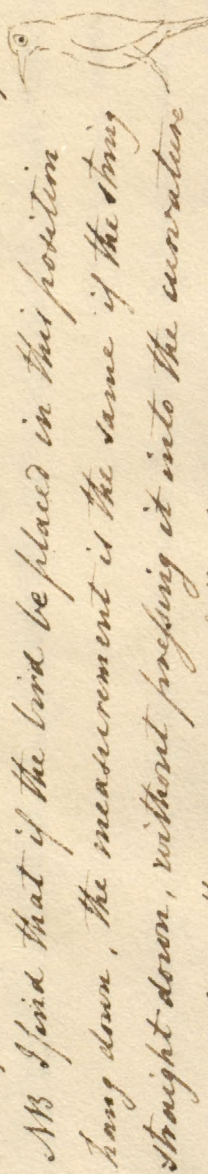 NB I find that if the bird be placed in this position
hang down, the measurement is the same if the string
straight down, without pressing it into the curvature